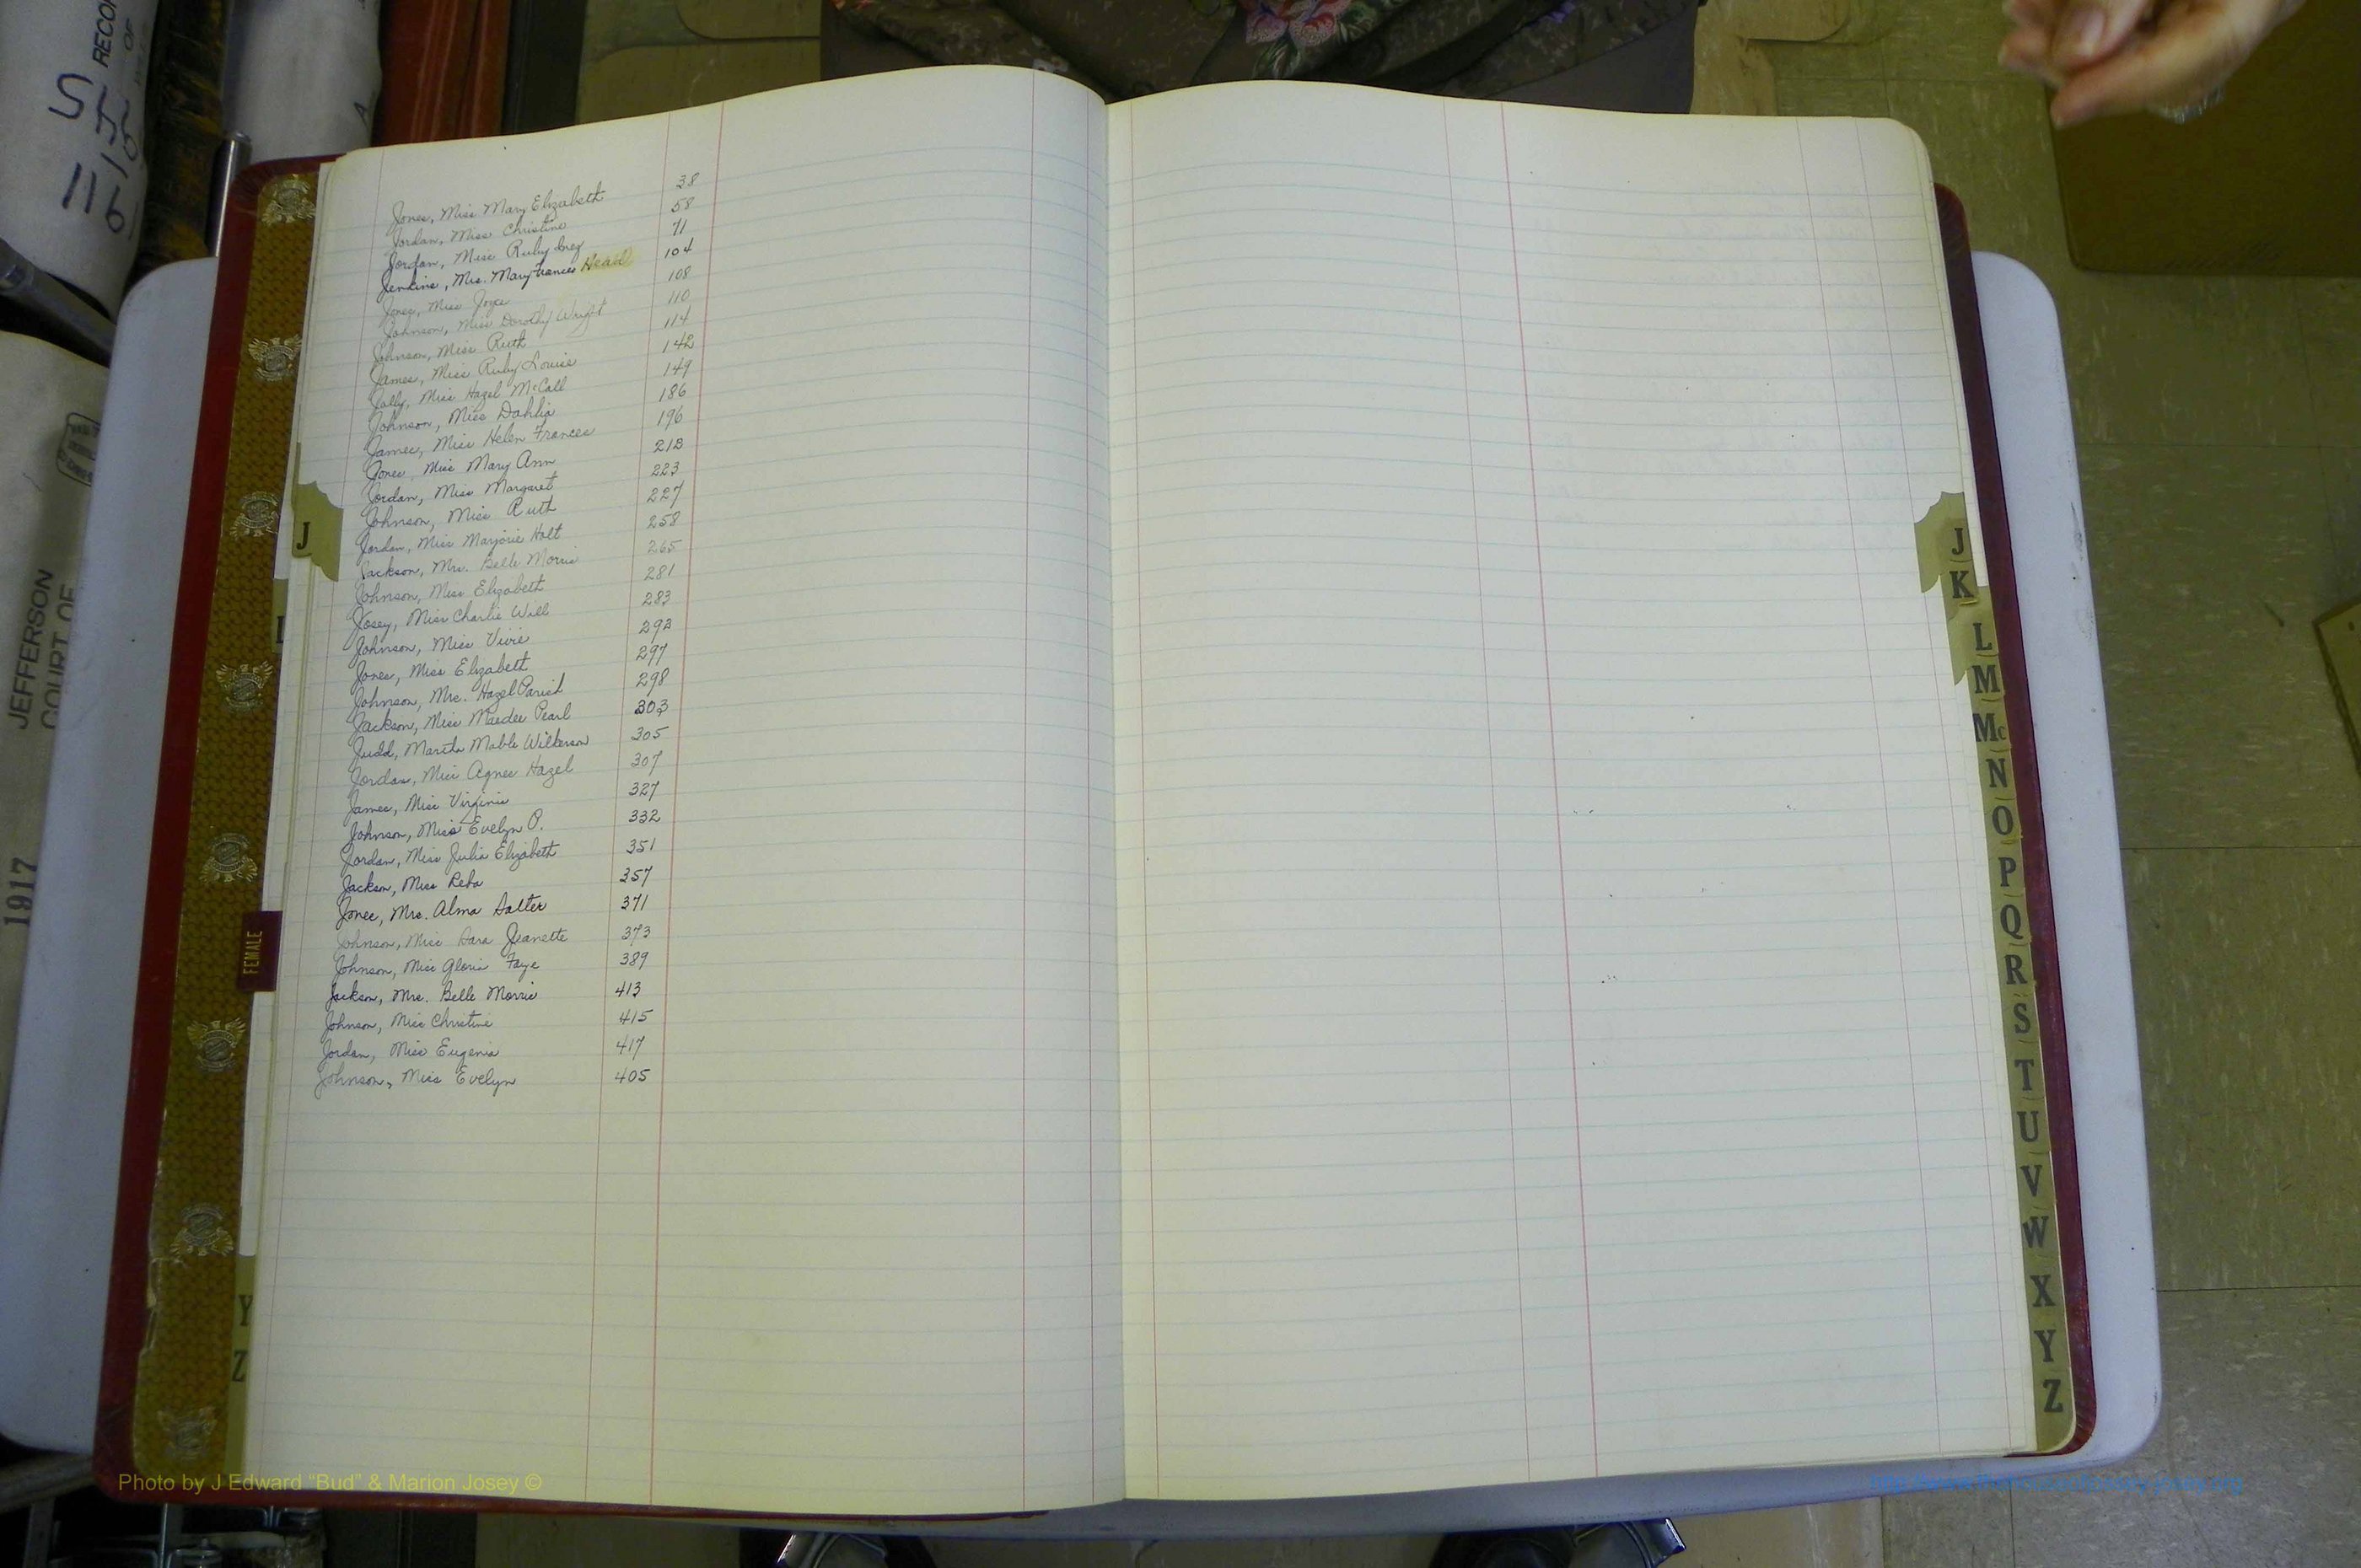 Jones, Miss Mary Elizabeth 38
Jordan, Miss Christine 58
Jordan, Miss Ruby Inez 71
Jenkins, Mrs. Mary Frances Head 104
Jones, Miss Joyce 108
Johnson, Miss Dorothy Wright 110
Johnson, Miss Ruth 114
James, Miss Ruby Louise 142
Jolly, Miss Hazel McCall 149
Johnson, Miss Dahlia 186
James, Miss Helen Frances 196
Jones, Miss Mary Ann 213
Jordan, Miss Margaret 223
Johnson, Miss Ruth 227
Jordan, Miss Marjorie Holt 258
Jackson, Mrs. Belle Morris 265
Johnson, Miss Elizabeth 281
Josey, Miss Charlie Will 283
Johnson, Miss 292
Jones, Miss Elizabeth 297
Johnson, Mrs. Hazel Parish 298
Jackson, Miss Maedee Pearl 303
Judd, Martha Mable Wilkerson 305
Jordan, Miss Agnes Hazel 307
James, Miss Virginia 327
Johnson, Miss Evelyn P. 332
Jordan, Miss Julia Elizabeth 351
Jackson, Miss Reba 357
Jones, Mrs. Alma Salter 371
Johnson, Miss Sara Jeanette 373
Johnson, Miss Gloria Faye 389
Jackson, Mrs. Belle Morris 413
Johnson, Miss Christine 415
Jordan, Miss Eugenia 417
Johnson, Miss Evelyn 405
J
L
FEMALE
Y
Z
J
K
L
M
Mc
N
O
P
Q
R
S
T
U
V
W
X
Y
Z
RECOR
OF
JEFFERSON
COURT OF
1917
Photo by J Edward "Bud" & Marion Josey ©